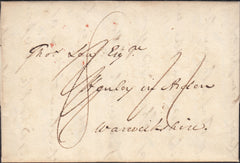 Thos Law Esqre
Henley in Arden
Warwickshire.